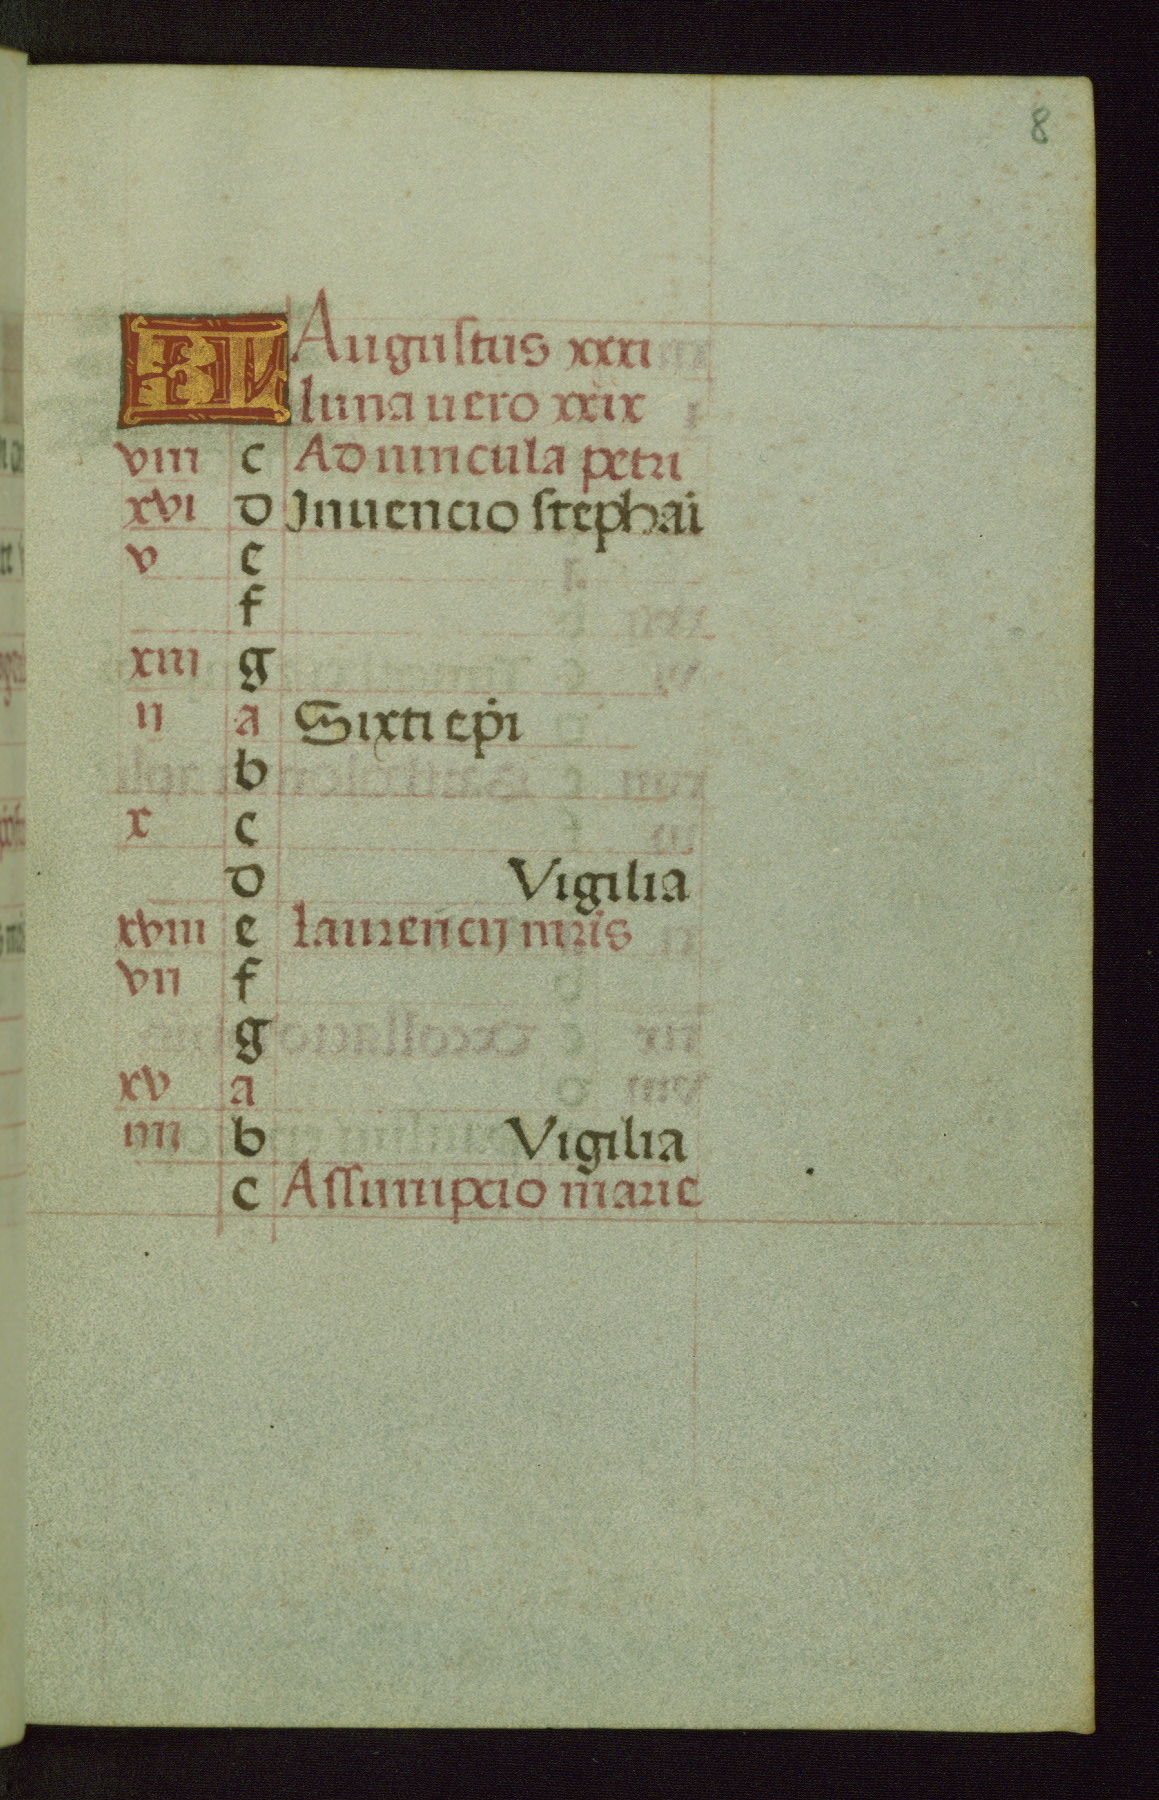 8
KL Augustus xxxi
luna uero xxix
viii c Ad uincula petri
xvi d Inuencio stephai
v e
f
xiii g
ii a Sixti epi
b
x c
d Vigilia
xviii e laurencij mris
vii f
g
xv a
iiii b Vigilia
c Assumpcio marie